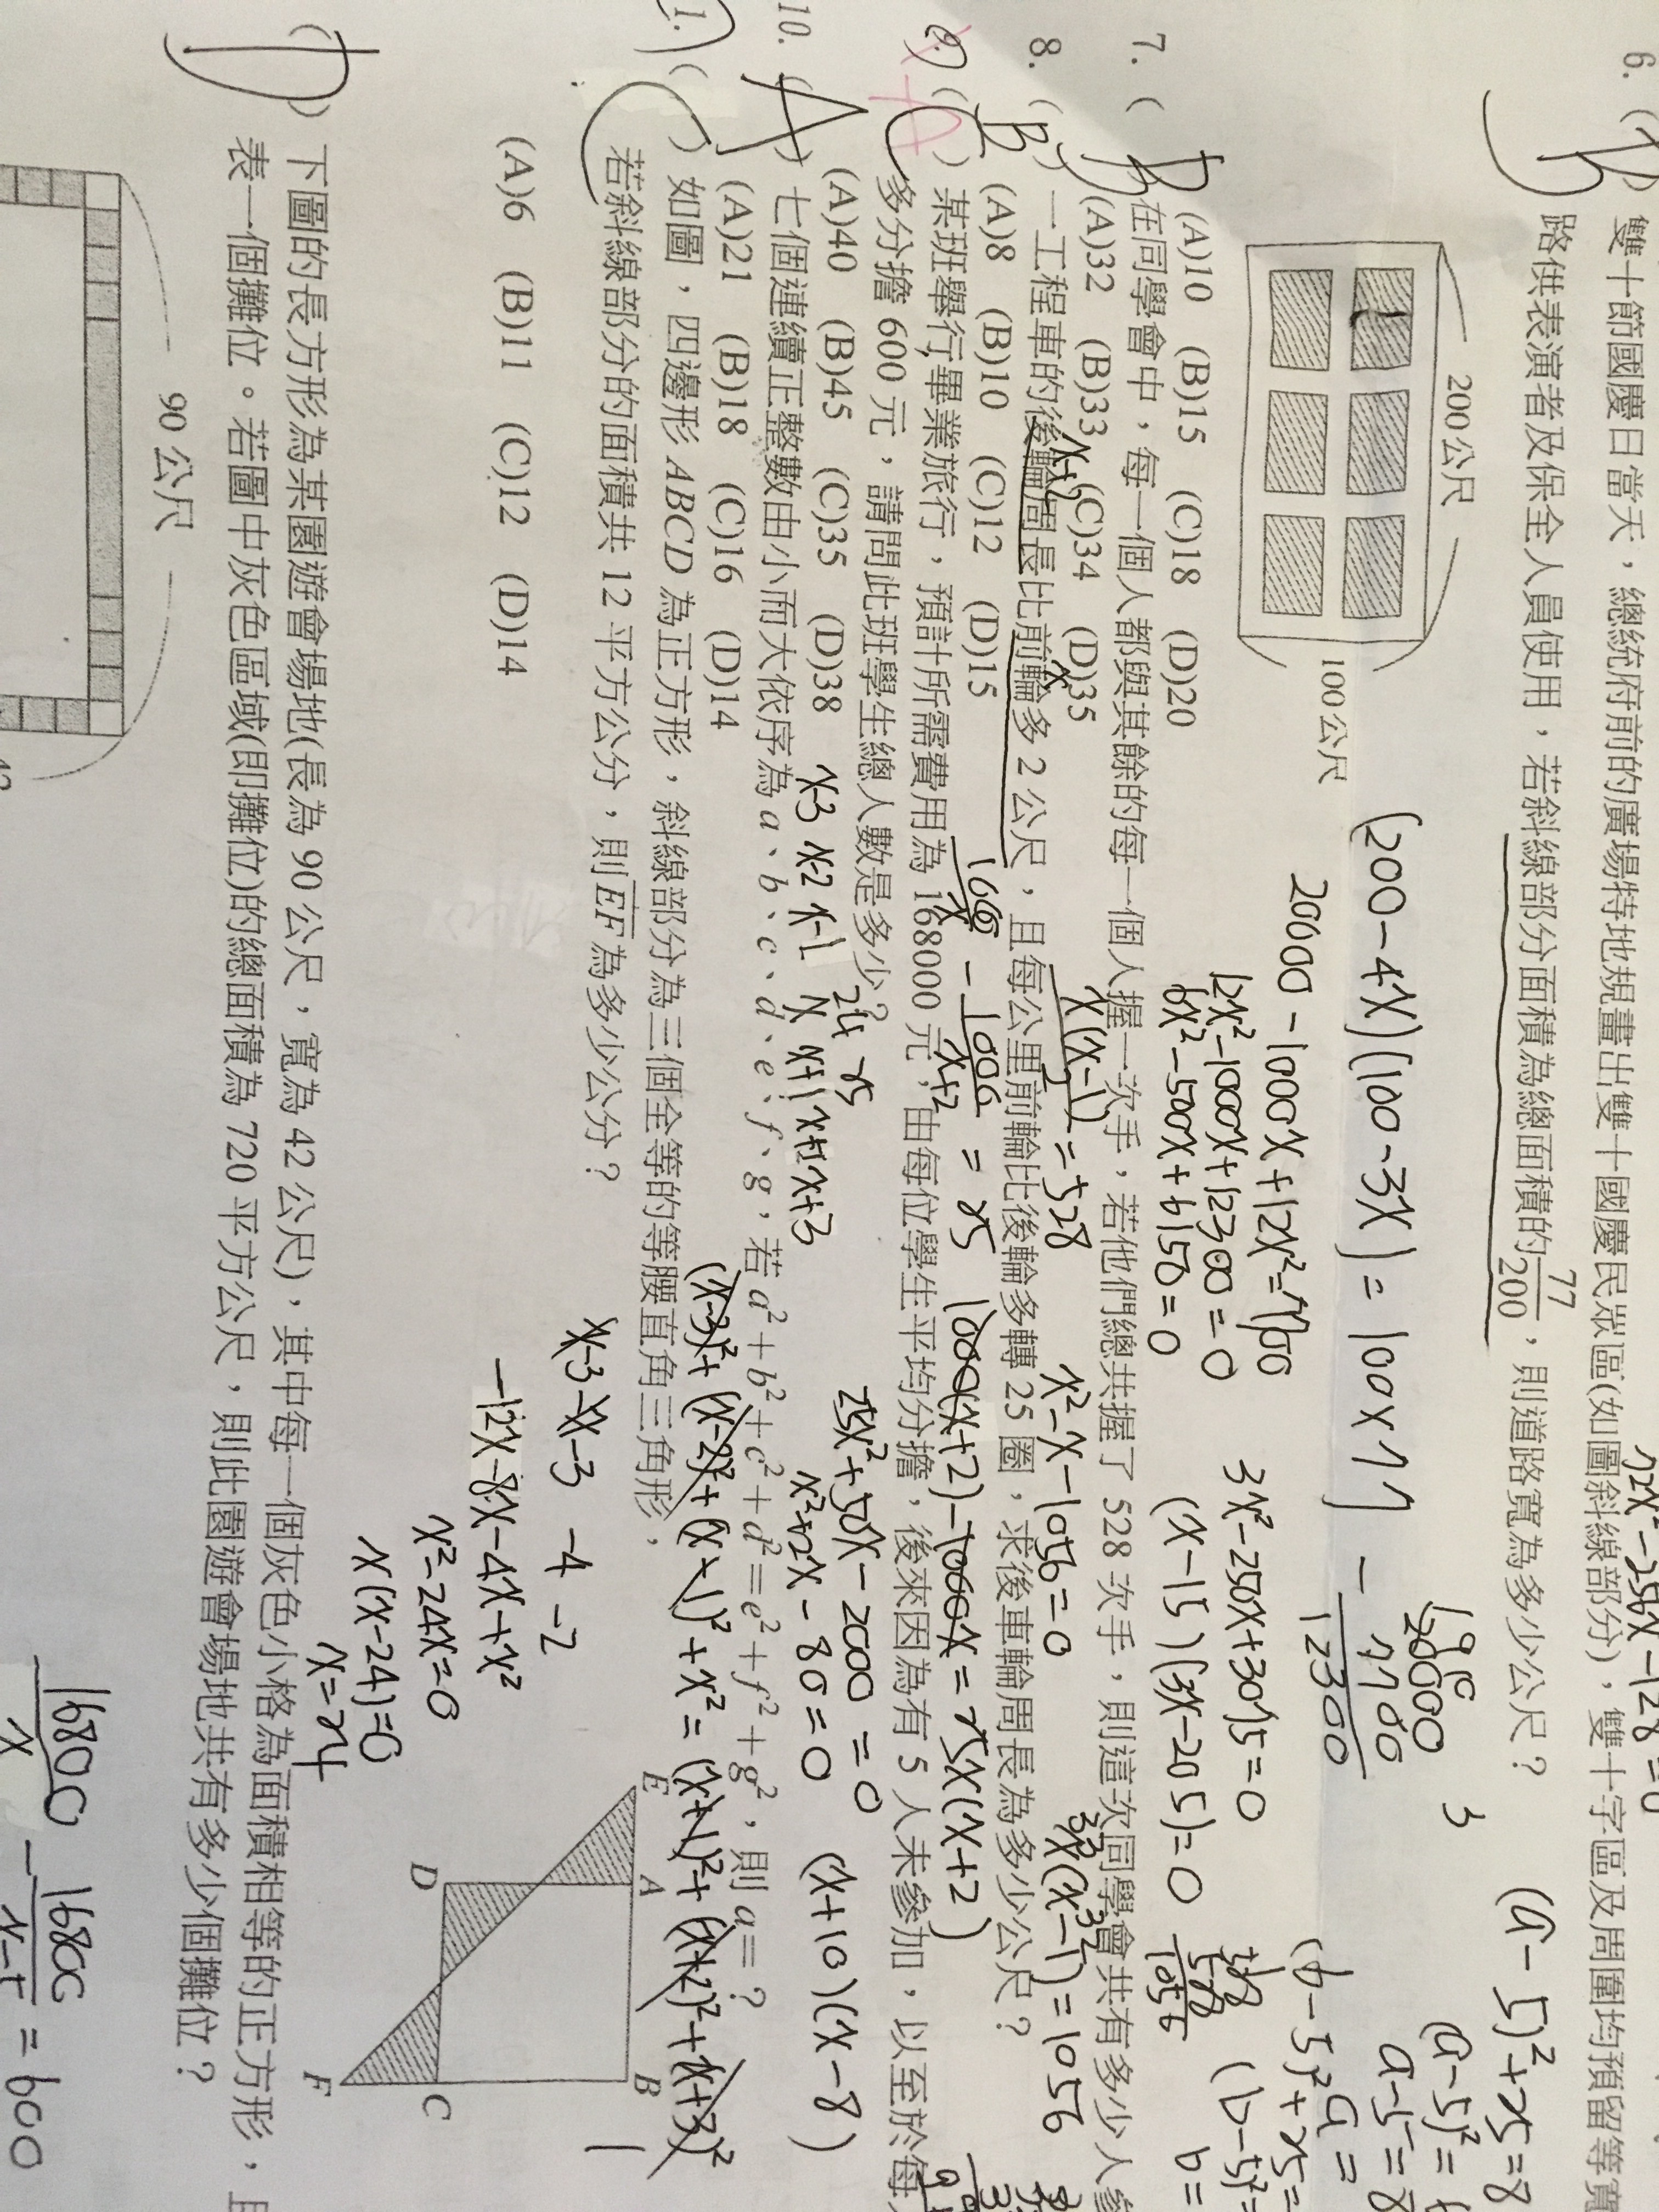 6. ( B ) 雙十節國慶日當天，總統府前的廣場特地規畫出雙十國慶民眾區(如圖斜線部分)，雙十字區及周圍均預留等寬
路供表演者及保全人員使用，若斜線部分面積為總面積的77/200，則道路寬為多少公尺？
200公尺
100公尺
(200-4x)(100-3x)=100x77
20000-1000x+12x²=7700
12x²-1000x+12300=0
6x²-500x+6150=0
3x²-250x+3075=0
(x-15)(3x-205)=0
20000
7700
12300
(A)10 (B)15 (C)18 (D)20
7. ( B ) 在同學會中，每一個人都與其餘的每一個人握一次手，若他們總共握了 528 次手，則這次同學會共有多少人參
(A)32 (B)33 (C)34 (D)35
x(x-1)/2=528
x²-x-1056=0
x(x-1)=1056
8. ( B ) 一工程車的後輪周長比前輪多 2 公尺，且每公里前輪比後輪多轉 25 圈，求後車輪周長為多少公尺？
x+2
x
(A)8 (B)10 (C)12 (D)15
1000/x - 1000/x+2 = 25
1000(x+2)-1000x=25x(x+2)
25x²+50x-2000=0
x²+2x-80=0
(x+10)(x-8)
9. ( C ) 某班舉行畢業旅行，預計所需費用為 168000 元，由每位學生平均分擔，後來因為有 5 人未參加，以至於每
多分擔 600 元，請問此班學生總人數是多少？
(A)40 (B)45 (C)35 (D)38
x-3 x-2 x-1 x x+1 x+2 x+3
10. ( A ) 七個連續正整數由小而大依序為 a、b、c、d、e、f、g，若 a²+b²+c²+d²=e²+f²+g²，則 a=？
(A)21 (B)18 (C)16 (D)14
(x-3)²+(x-2)²+(x-1)²+x²=(x+1)²+(x+2)²+(x+3)²
-12x-8x-4x+x²
x²-24x=0
x(x-24)=0
x=24
1. ( C ) 如圖，四邊形 ABCD 為正方形，斜線部分為三個全等的等腰直角三角形，
若斜線部分的面積共 12 平方公分，則EF為多少公分？
(A)6 (B)11 (C)12 (D)14
E A B
D C
F
( D ) 下圖的長方形為某園遊會場地(長為 90 公尺，寬為 42 公尺)，其中每一個灰色小格為面積相等的正方形，且
表一個攤位。若圖中灰色區域(即攤位)的總面積為 720 平方公尺，則此園遊會場地共有多少個攤位？
90 公尺